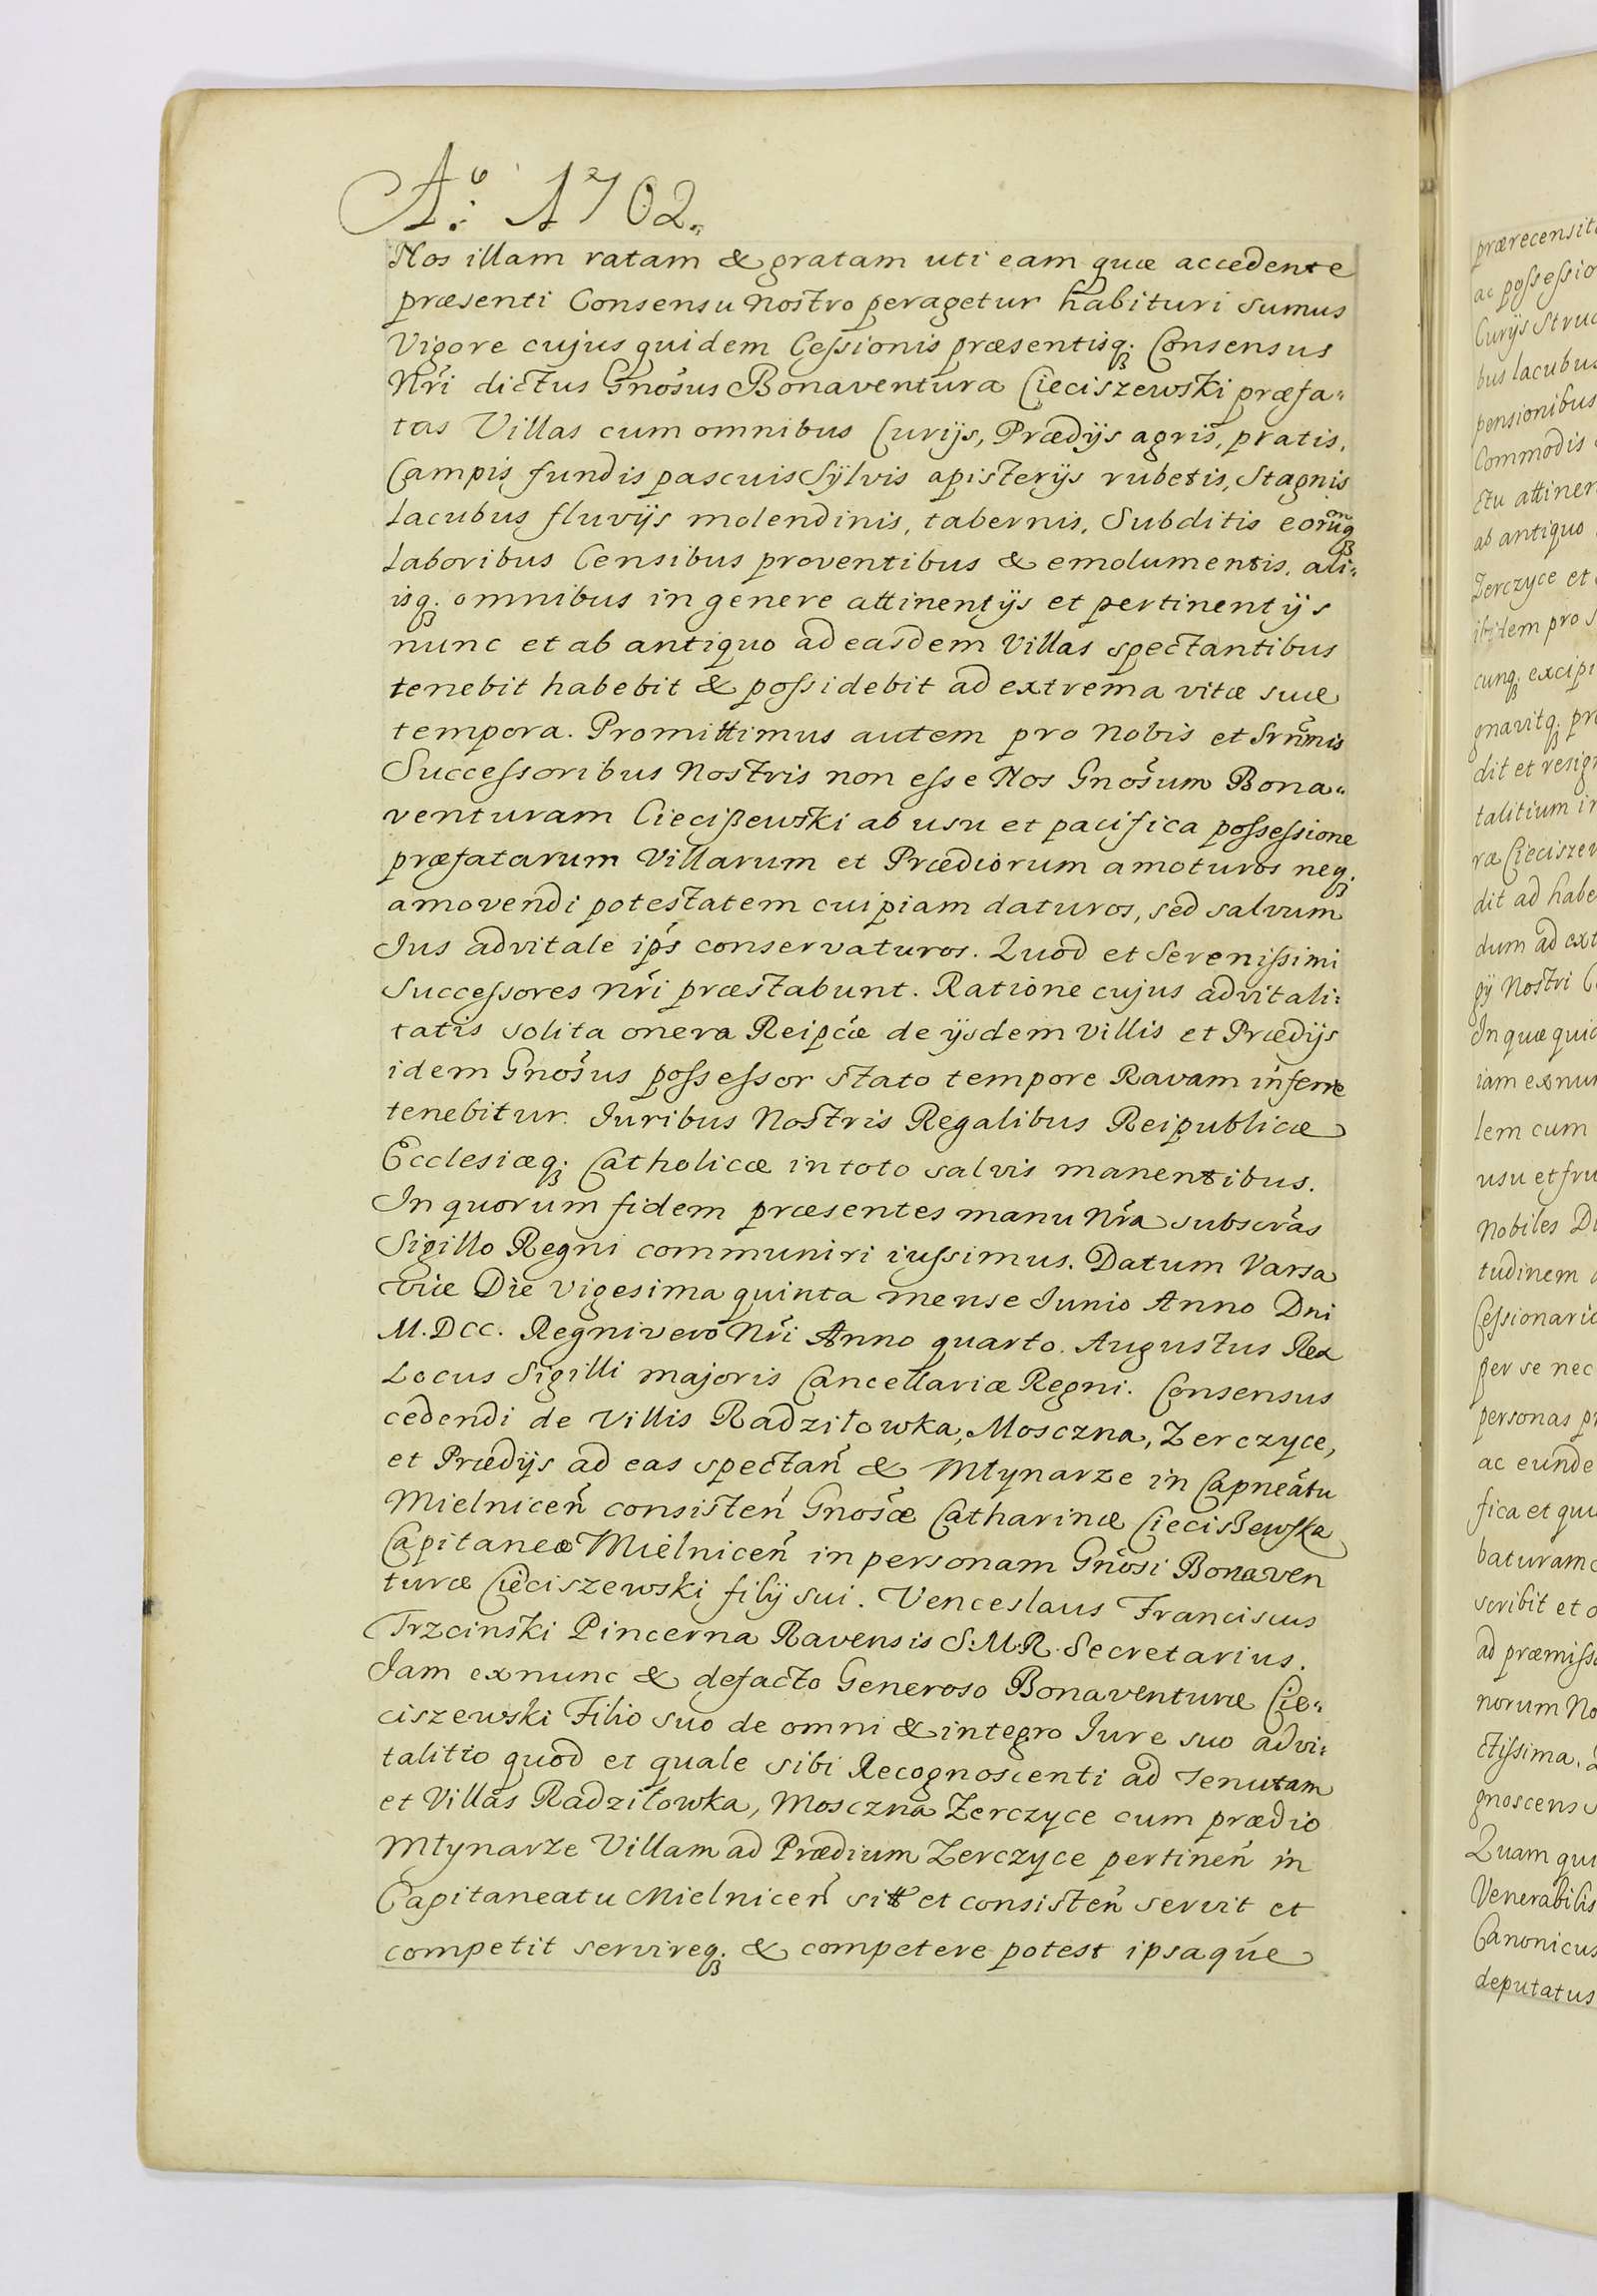 Aº: 1702.
Nos illam ratam & gratam uti eam quæ accedente
præsenti Consensu Nostro peragetur habituri sumus
Vigore cujus quidem Cessionis præsentisq. Consensus
Nri dictus Gnosus Bonaventura Cieciszewski præfa-
tas Villas cum omnibus Curijs, Prædijs agris, pratis,
Campis fundis pascuis Sylvis apisterijs rubetis, Stagnis
Lacubus fluvijs molendinis, tabernis, Subditis eorumq
Laboribus Censibus proventibus & emolumentis, ali-
isq. omnibus in genere attinentijs et pertinentijs
nunc et ab antiquo ad easdem Villas spectantibus
tenebit habebit & possidebit ad extrema vitæ suæ
tempora. Promittimus autem pro Nobis et Srnmis
Successoribus Nostris non esse Nos Gnosum Bona-
venturam Ciecißewski ab usu et pacifica possessione
præfatarum Villarum et Prædiorum amoturos neq.
amovendi potestatem cuipiam daturos, sed salvum
Jus advitale ips conservaturos. Quod et Serenissimi
Successores nri præstabunt. Ratione cujus advitali-
tatis solita onera Reipcæ de ijsdem villis et Prædijs
idem Gnosus possessor stato tempore Ravam inferre
tenebitur. Juribus Nostris Regalibus Reipublicæ
Ecclesiæq. Catholicæ in toto salvis manentibus.
In quorum fidem præsentes manu Nra subscras
Sigillo Regni communiri iussimus. Datum Varsa
viæ Die vigesima quinta mense Junio Anno Dni
M.DCC. Regni vero Nri Anno quarto. Augustus Rex
Locus Sigilli majoris Cancellariæ Regni. Consensus
cedendi de Villis Radziłowka, Mosczna, Zerczyce,
et Prædijs ad eas spectan & Młynarze in Capneatu
Mielnicen consisten Gnosæ Catharinæ Ciecisßewska
Capitaneæ Mielnicen in personam Gnosi Bonaven
turæ Cieciszewski filij sui. Venceslaus Franciscus
Trzcinski Pincerna Ravensis S.M.R. Secretarius.
Jam exnunc & defacto Generoso Bonaventuræ Cie-
ciszewski Filio suo de omni & integro Jure suo advi-
talitio quod et quale sibi Recognoscenti ad Tenutam
et Villas Radziłowka, Mosczna Zerczyce cum prædio
Młynarze Villam ad Prædium Zerczyce pertinen in
Capitaneatu Mielnicen sitt et consisten servit et
competit servireq. & competere potest ipsaque
prærecensit
ac possessio
Curijs Struc
bus lacubus
pensionibus
Commodis
ctu attinen
ab antiquo
Zerczyce et
ibidem pro s
cunq. excipi
gnavitq. pr
dit et resig
talitium in
ræ Cieciszew
dit ad habe
dum ad ext
gij Nostri C
In quæ quid
iam exnun
lem cum
usu et fru
Nobiles Du
tudinem
Cessionaric
per se nec
personas pr
ac eunde
fica et qui
baturam c
scribit et o
ad præmiss
norum No
ctissima.
gnoscens s
Quam qui
Venerabilis
Canonicus
deputatus